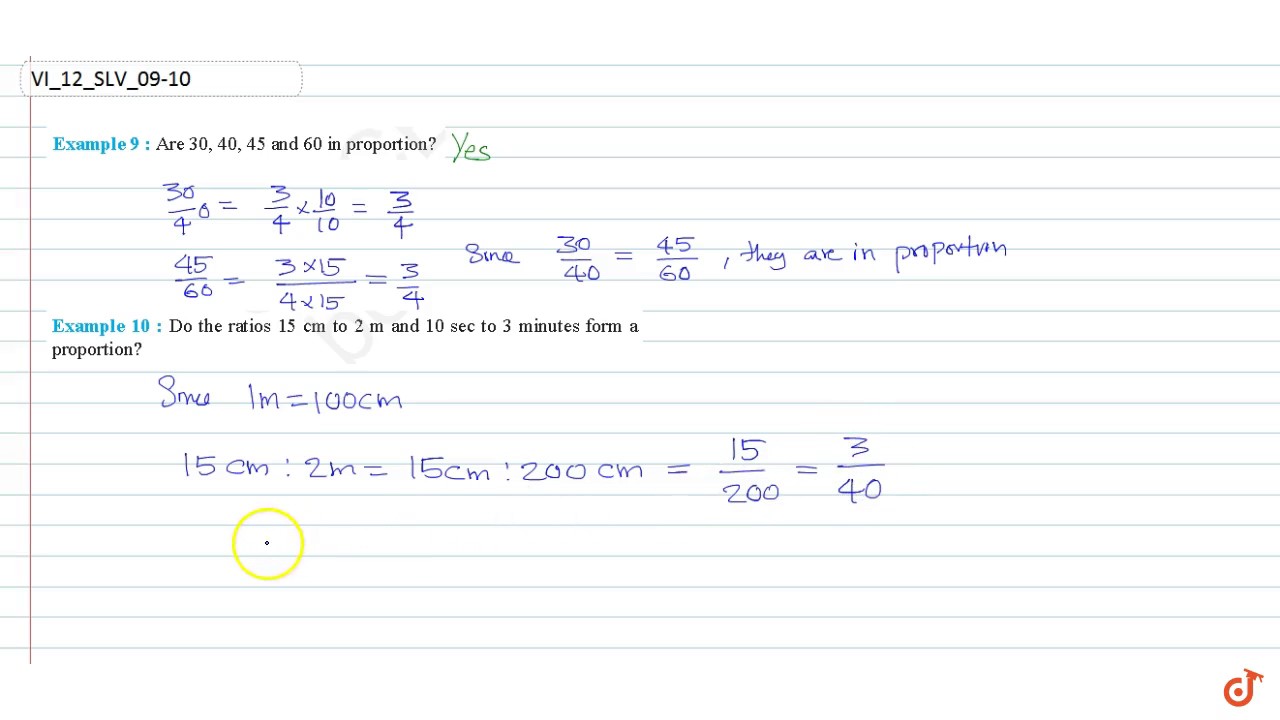 VI_12_SLV_09-10
Example 9 : Are 30, 40, 45 and 60 in proportion? Yes
30/40 = 3/4 × 10/10 = 3/4
45/60 = 3×15/4×15 = 3/4
Since 30/40 = 45/60, they are in proportion
Example 10 : Do the ratios 15 cm to 2 m and 10 sec to 3 minutes form a
proportion?
Since 1m = 100cm
15 cm : 2m = 15cm : 200 cm = 15/200 = 3/40